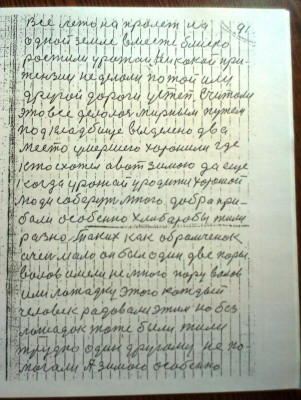 91
все лето на пролет на
одной земле вместе близко
ростили урожай. Никакой при-
тензии не делали по той или
другой дороги уєтет. Считали
это все делалось мирным путем
под кладбище выделено два
место умершего хоронили где
кто схотел а вот зимою да еще
когда урожай уродит хороший
люди соберут много добра при-
были особенно хлиборобы жили
разно. Таких как Обрамченок
очень мало он был один две пары
волов имели не много пару волов
или лошадку этого каждый
человек радовали этим но без
лошадок тоже были жили
трудно один другому не по-
могали А зимою особенно